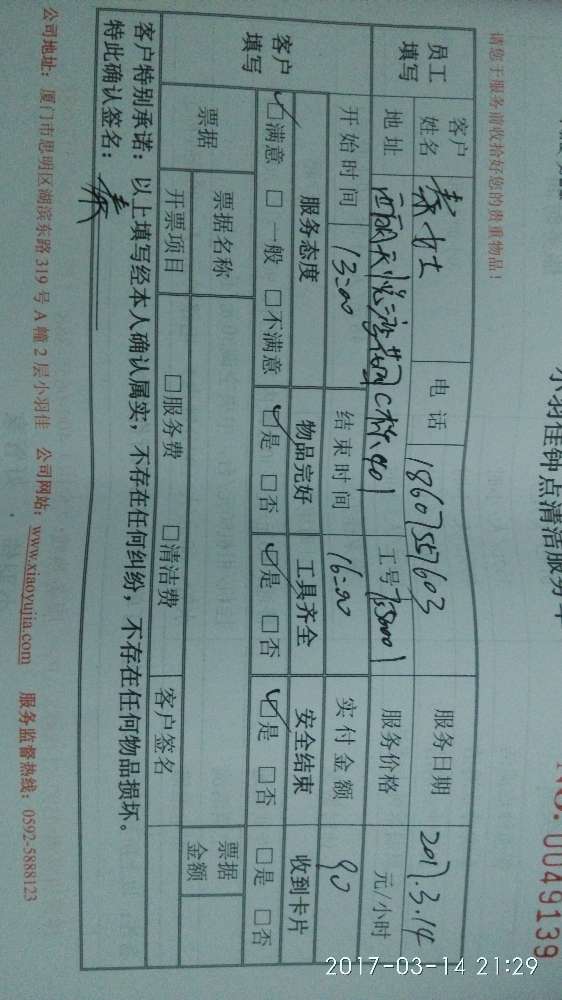 小羽佳钟点清洁服务单
NO.0049139
请您于服务前收拾好您的贵重物品！
员工填写 客户姓名 秦女士 电话 18607557603 服务日期 2017.3.14
地址 工号 服务价格 元/小时
客户填写 开始时间 13:00 结束时间 16:00 实付金额 90
服务态度 物品完好 工具齐全 安全结束 收到卡片
☑满意 □一般 □不满意 ☑是 □否 ☑是 □否 ☑是 □否 □是 □否
票据 票据名称 票据金额
开票项目 □服务费 □清洁费 客户签名
客户特别承诺：以上填写经本人确认属实，不存在任何纠纷，不存在任何物品损坏。
特此确认签名：秦
公司地址：厦门市思明区湖滨东路319号A幢2层小羽佳 公司网站：www.xiaoyujia.com 服务监督热线：0592-5888123
2017-03-14 21:29